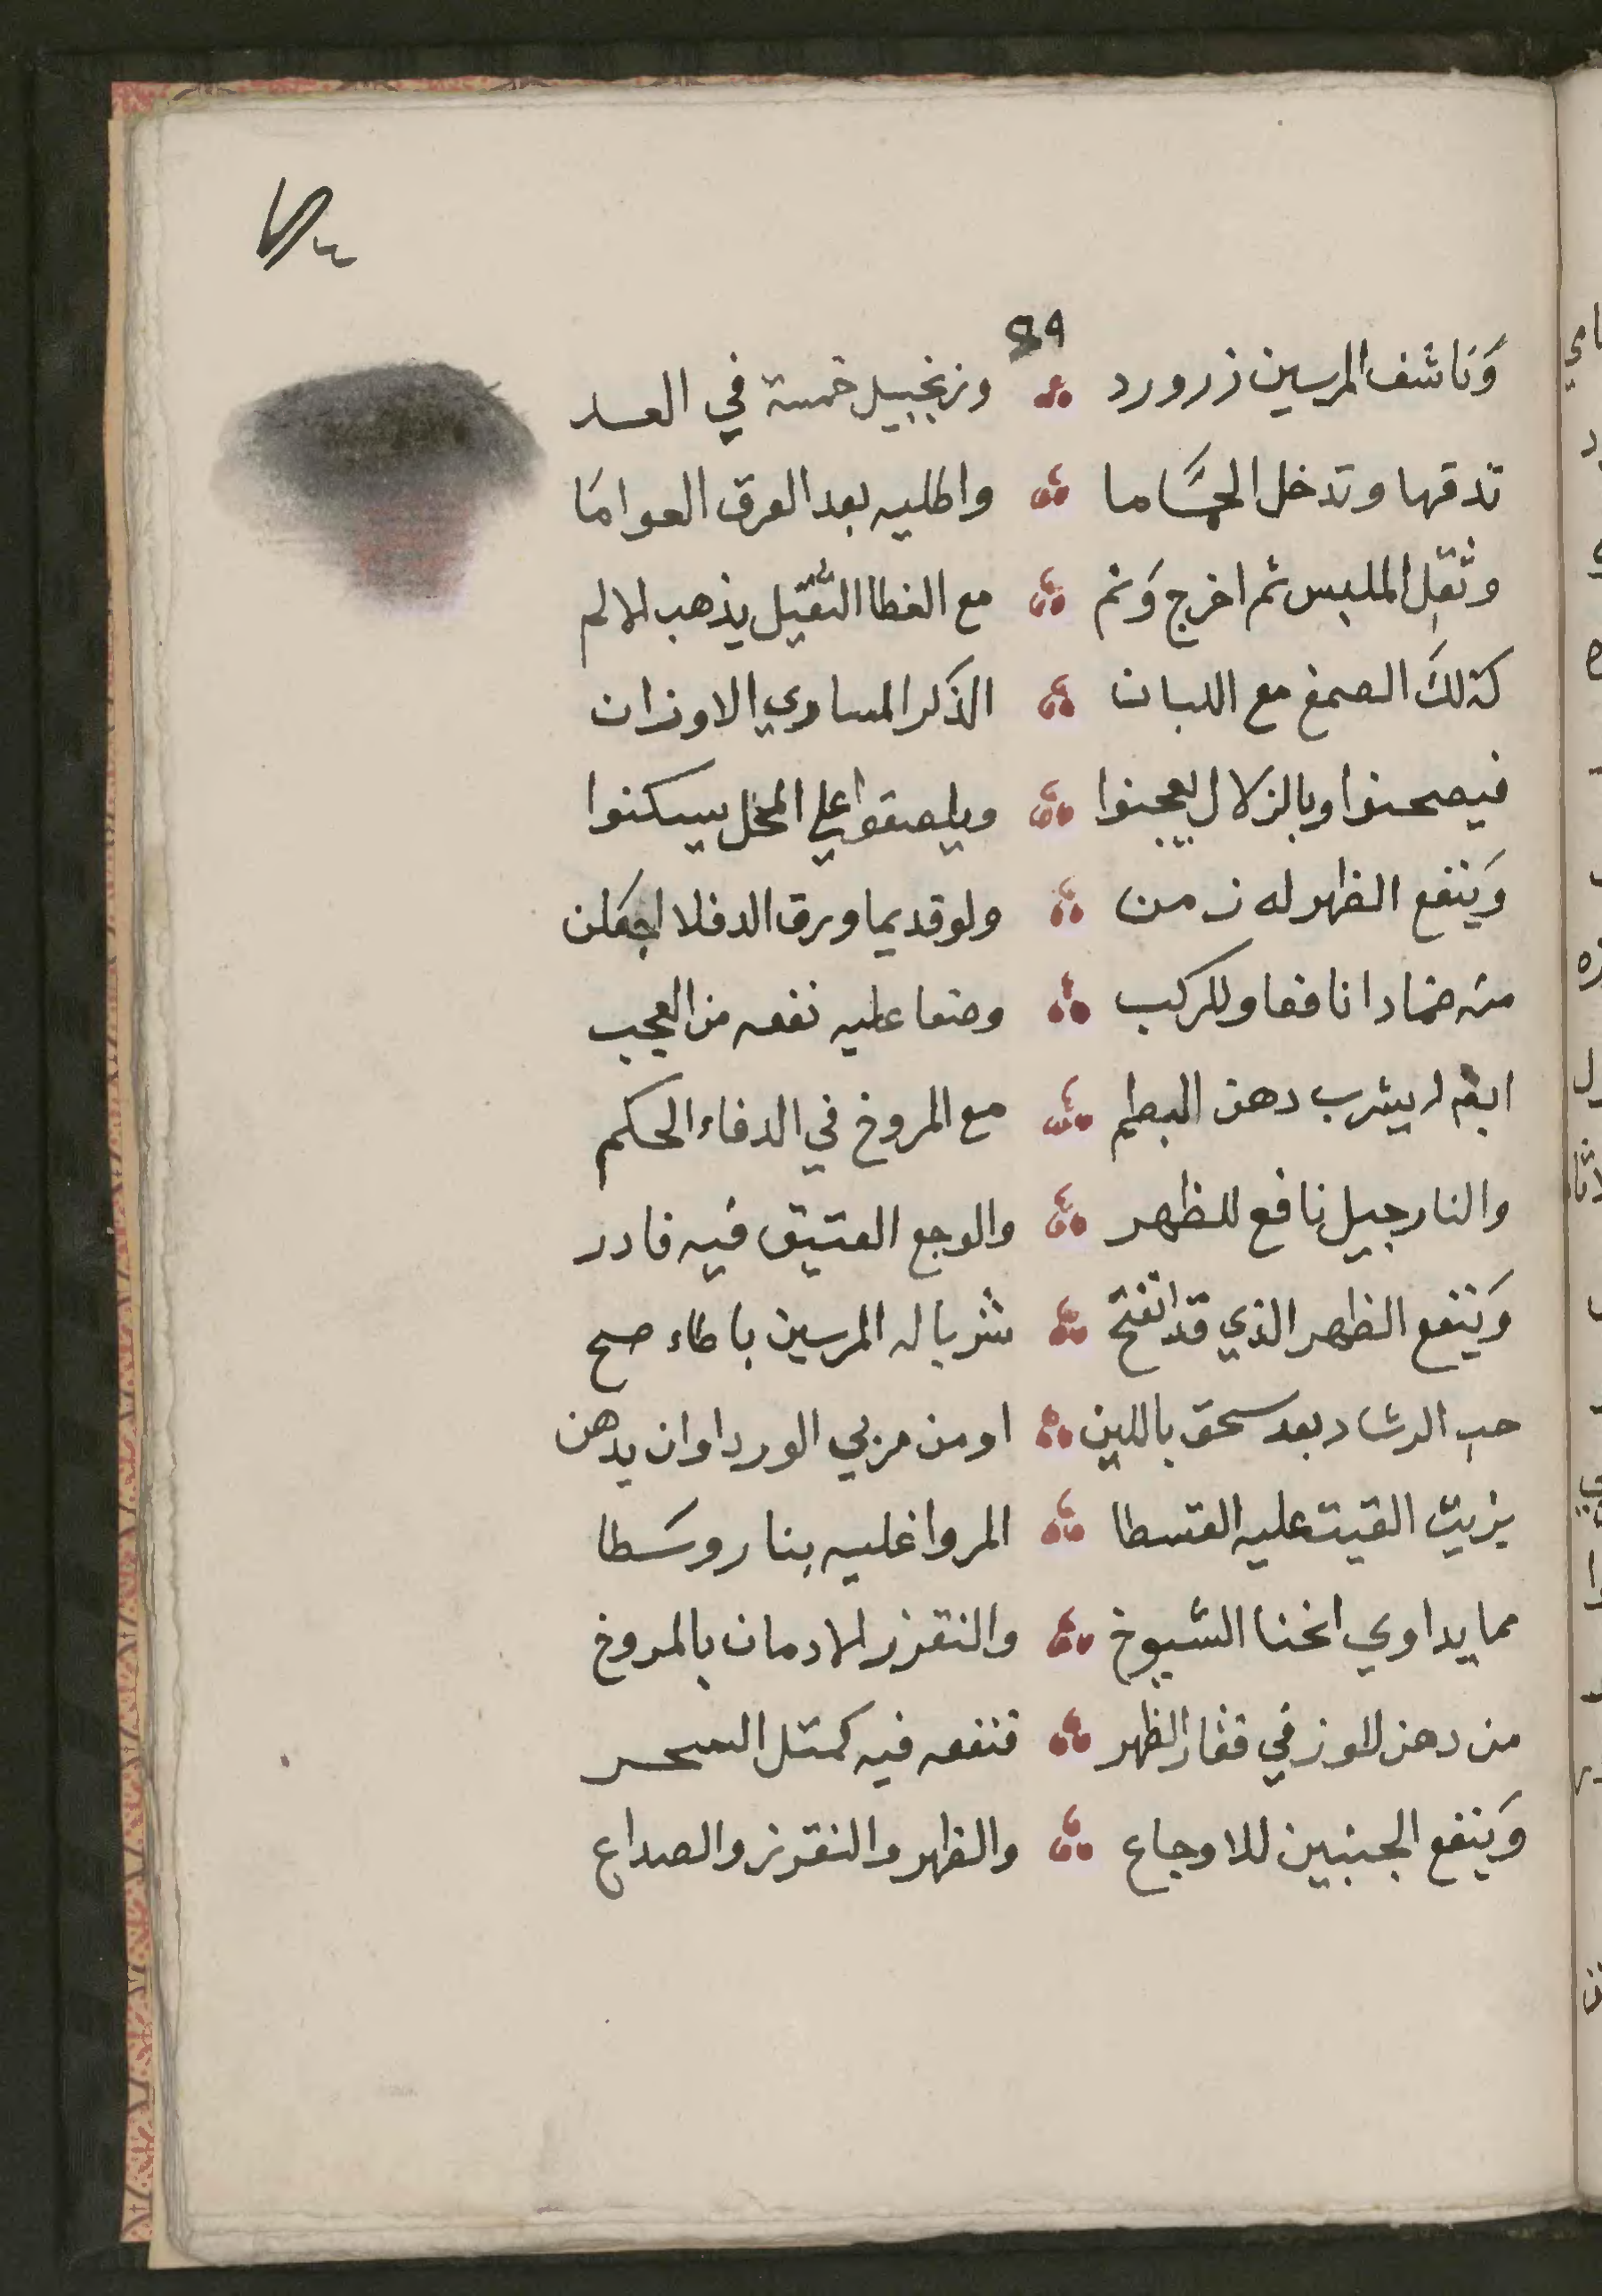 89
وَنَاشف المرسين زر ورد وزنجبيل خمسة في العد
تدقها وتدخل الحمَّاما واطليه بعد العرق العوامَا
وثقل الملبس ثم اخرج وَنم مع الغطا الثقيل يذهب الالم
كذلكَ الصمغ مع اللبان الذَكر المساوي الاوزان
فيصحنوا وبالزلال يعجنوا ويلصقوا على المخل يسكنوا
وَينفع الظهر له زمن ولو قديما ورق الدفلا اجعَلن
منه ضمادا نافعا وللركب وضعا عليه نفعه من العجب
ايضا يشرب دهن البطم مع المروخ في الدفاء الحكم
والنارجيل نافع للظهر والوجع العتيق فيه فادر
وَينفع الظهر الذي قد انفتح شربا له المرسين باطاء صح
حب الرشاد بعد سحق باللبن او من مربي الورد اوان يدهن
بزيت القيت عليه القسطا المر واغليه بنار وسَطا
مما يداوي انحنا الشيوخ والنقزز الادمان بالمروخ
من دهن اللوز في فقار الظهر فنفعه فيه كمثل السحر
وَينفع الجنبين للاوجاع والظهر والنقرز والصداع